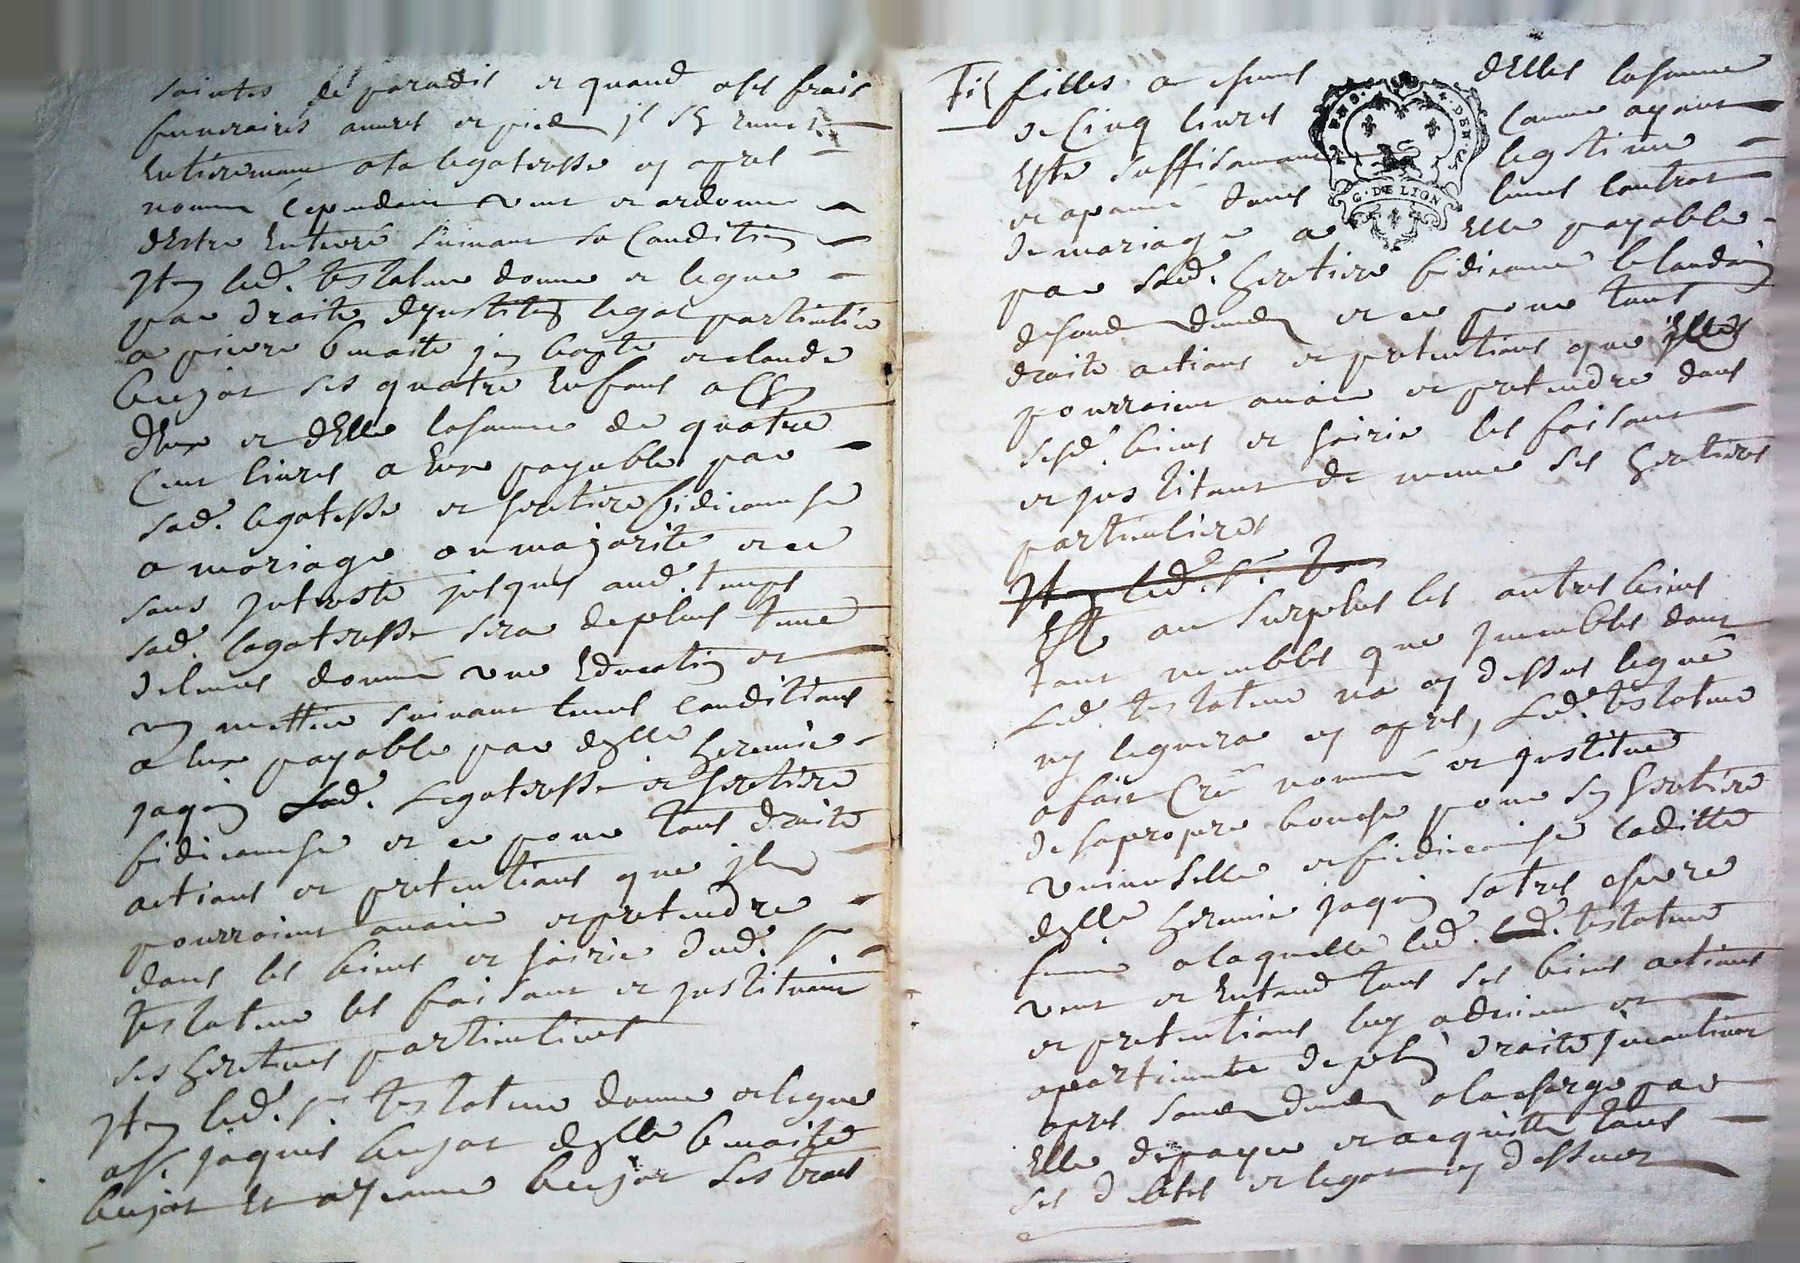 saintes de paradis et quand a ses frais
funeraires aumes et pied jl s'en remet
Entierement a la legateresse cy apres
nommé cependant veut et ordonne
d'Estre Enterré suivant sa Condition
Jtem led. testateur donne et legue
par droit d'jnstitution legat particulier
a pierre benoite jean bapte et claude
beujat ses quatre Enfans a Chacun
d'Eux et d'Elle la somme de quatre
Cent livres a Eux payable par
sad. legateresse et heritiere fidicomise
a mariage ou majorité et ce
sans jnterest jusques aud. temps
sad. legateresse sera de plus tenue
de leurs donner une Education et
un mettier suivant leurs conditions
a Eux payable par dlle heremie
jaquin Lad. Legateresse et heritiere
fidicomise et ce pour tous droits
actions et pretentions que jls
pourroient avoir et pretendre
dans les biens et hoirie dud. sr.
testateur les faisant et jnstituant
ses heritiers particuliers
Jtem led. sr. testateur donne et legue
a jaques beujat dlle benoite
beujat Et a jeanne beujat ses trois
fils filles a chacun d'Elles la somme
de Cinq livres Comme ayant
Esté suffisamment legitimé
et apané dans leurs Contrat
de mariage a Elle payable
par sad. heritiere fidicomise le landemain
de son deced et ce pour tous
droits actions et pretentions que Elles
pourroient avoir et pretendre dans
sesd. biens et hoirie les faisant
et jnstituant de meme ses heritieres
particulieres
Jtem led. sr.
Et au surplus les autres biens
tant meubles que jmeubles dont
Led. testateur na cy dessus legué
ny leguera cy apres, Led. testateur
a fait Créé nommé et jnstitué
de sa propre bouche pour son heritiere
universelle et fidicomise laditte
dlle heremie jaquin sa tres chere
femme a laquelle led. led. testateur
veut et Entend tous ses biens actions
et pretentions luy advenir et
apartenir de plein droit jncontinent
apres son deced a la charge par
Elle de payer et acquitter tous
ses debtes et legat cy dessus
G. DE LION